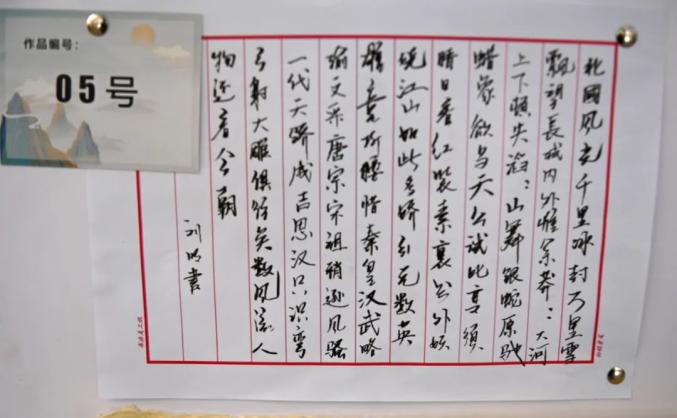 作品编号：
05号
北國風光千里冰封万里雪
飄望長城内外惟余莽：大河
上下頓失滔：山舞銀蛇原馳
蜡象欲与天公試比高須
晴日看红裝素裹分外妖
娆江山如此多娇引无数英
雄竞折腰惜秦皇汉武略
输文采唐宗宋祖稍逊风骚
一代天骄成吉思汗只识弯
弓射大雕俱往矣数风流人
物还看今朝
刘明書